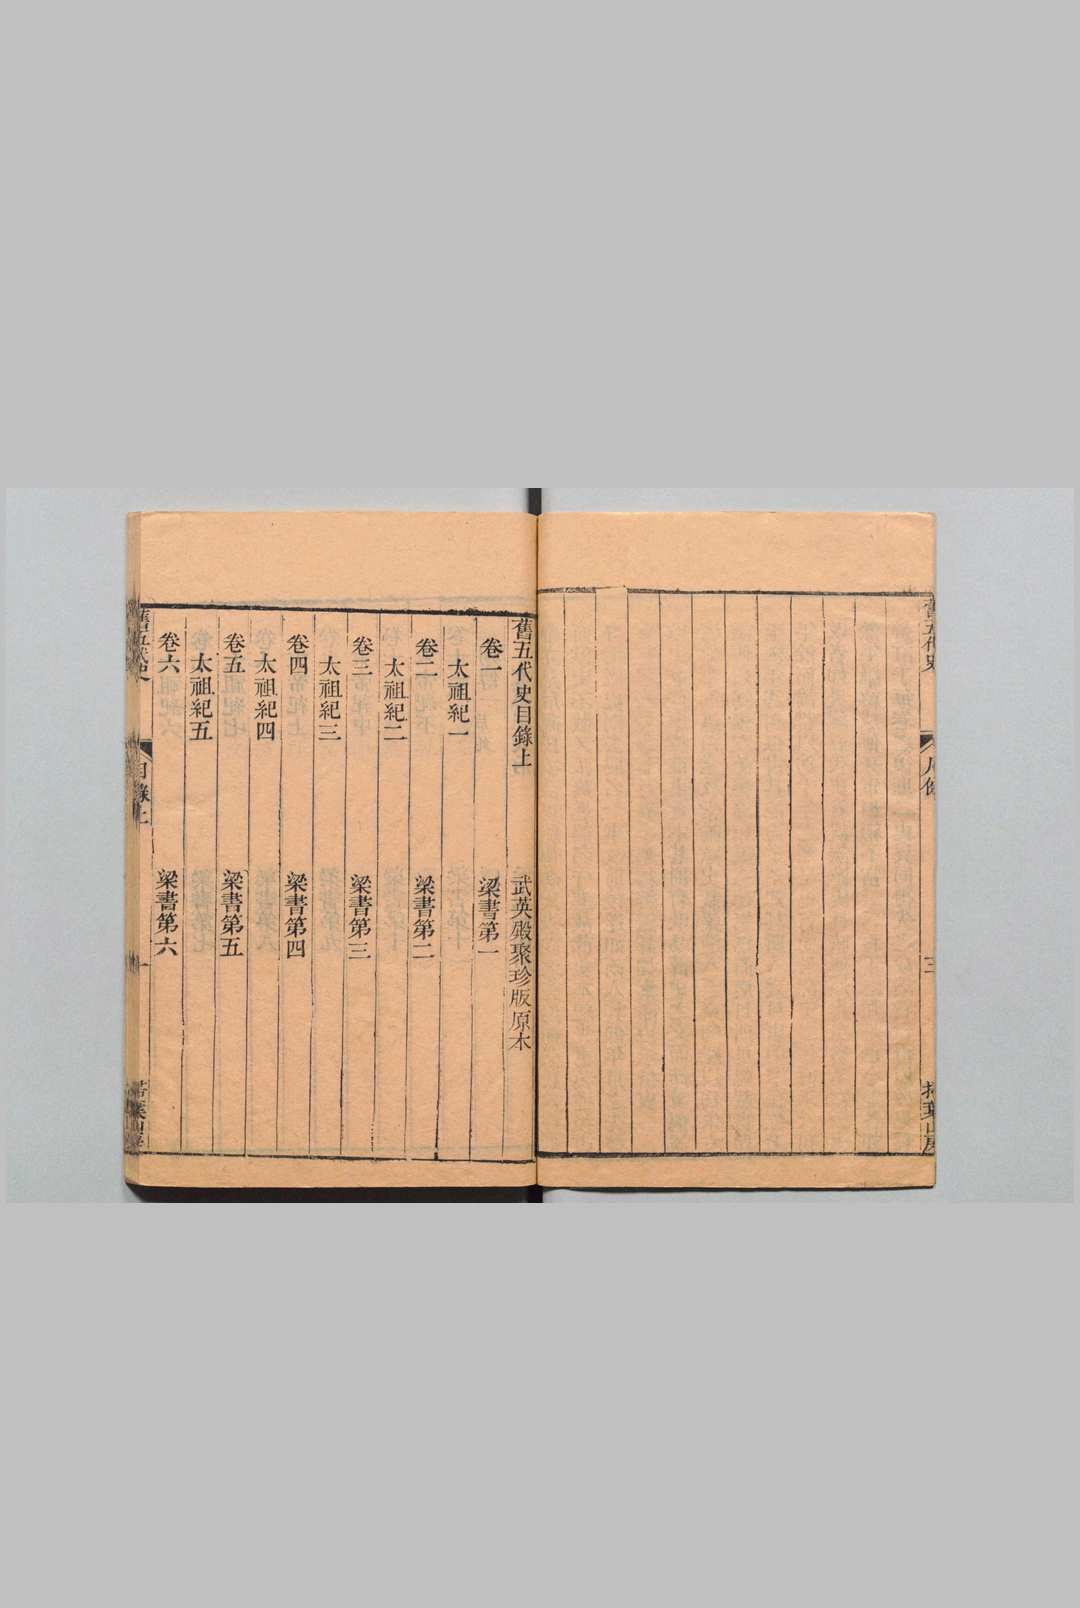 舊五代史
三
舊五代史目錄上
武英殿聚珍版原本
卷一
梁書第一
太祖紀一
卷二
梁書第二
太祖紀二
卷三
梁書第三
太祖紀三
卷四
梁書第四
太祖紀四
卷五
梁書第五
太祖紀五
卷六
梁書第六
舊五代史
目錄上
一